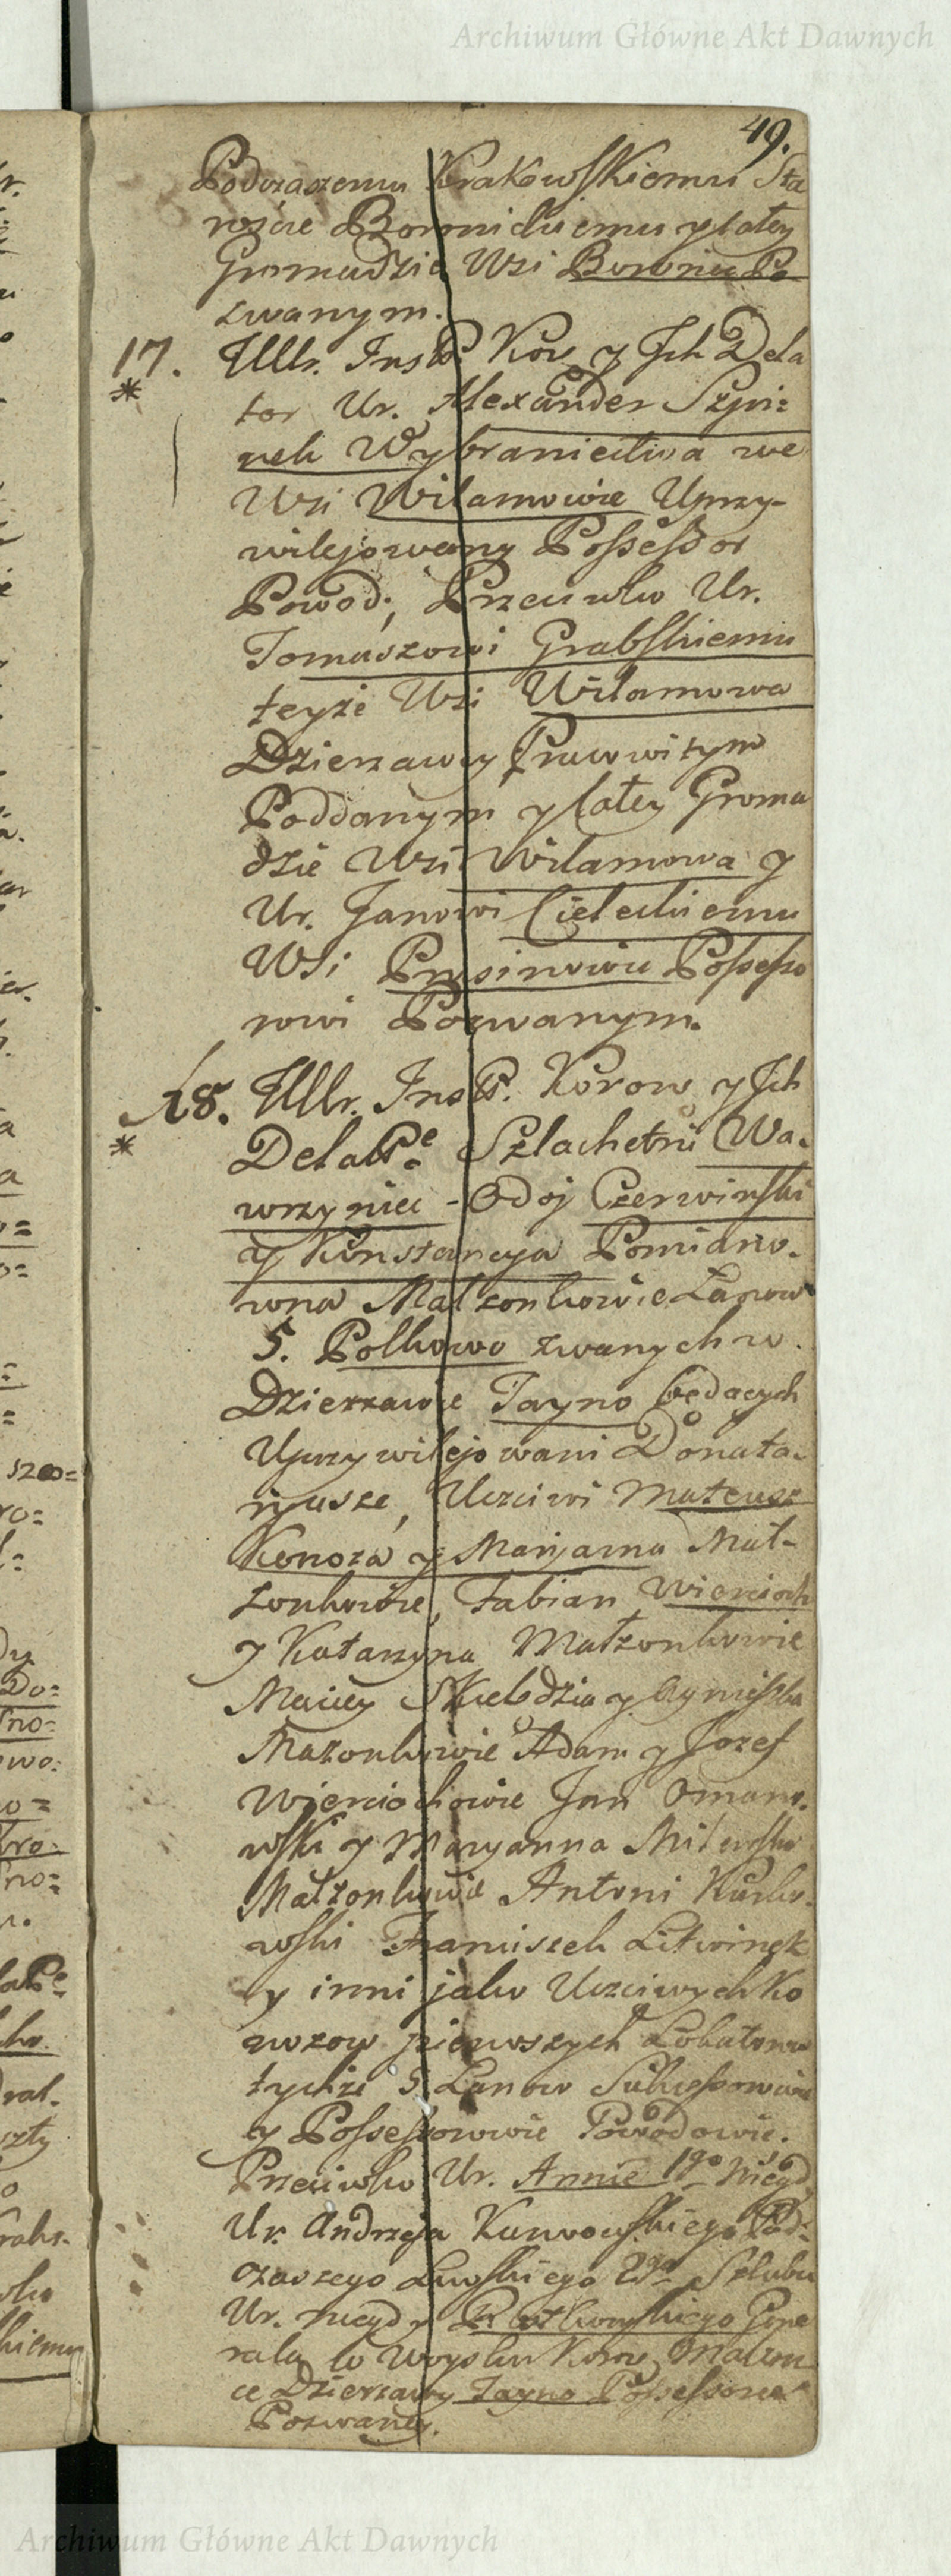 Archiwum Główne Akt Dawnych
49.
Podczaszemu Krakowskiemu Sta
roście Borownickiemu y całey
Gromadzie Wsi Borownicy Po
zwanym.
17. Ullr. Inst. Kor. y Ich Dela
tor Ur. Alexander Szpi:
nek Wybraniectwa we
Wsi Wilamowie Uprzy-
wilejowany Possessor
Powod; Przeciwko Ur.
Tomaszowi Grabskiemu
teyże Wsi Wilamowa
Dzierzawcy Pracowitym
Poddanym y całey Groma
dzie Wsi Wilamowa y
Ur. Janowi Cieleckiemu
Wsi Possesso
rowi Pozwanym.
18. Ullr. Inst. Korow. y Ich
Delat. Szlachetni Wa-
wrzyniec - Odoj Czerwiński
y Konstancya Pomiano-
wna Małzonkowie Łanow
5. Polkowo zwanych w
Dzierzawie Tayno będących
Uprzywilejowani Donata-
ryusze, Uczciwi Mateusz
Konoza y Maryanna Mał-
zonkowie, Fabian Wiercioch
y Katarzyna Małzonkowie
Maciey y Agnieszka
Mazonkowie Adam y Jozef
Wierciochowie Jan Omano-
wski y Maryanna Milewska
Małzonkowie Antoni
wski Franciszek Litwinek
y inni jako Uczciwych Ko
pierwszych
tychże 5. Łanow Sukcessorowie
y Possessorowie Powodowie.
Przeciwko Ur. Annie 1go niegd
Ur. Andrzeja Kurowskiego Pod-
czaszego 2go Szlubu
Ur. niegdy Gene
rała w Woysku Koron. Małzon
ce Dzierzawy Tayno Possessorce
Pozwaney.
Archiwum Główne Akt Dawnych